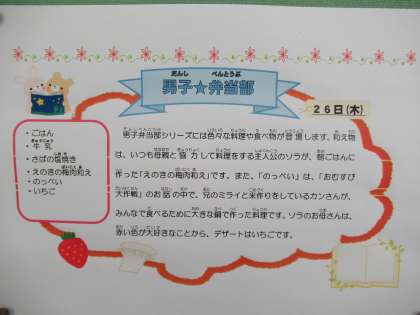 男子☆弁当部
26日(木)
・ごはん
・牛乳
・さばの塩焼き
・えのきの梅肉和え
・のっぺい
・いちご
男子弁当部シリーズには色々な料理や食べ物が登場します。和え物
は、いつも母親と協力して料理をする主人公のソラが、朝ごはんに
作った「えのきの梅肉和え」です。また、「のっぺい」は、「おむすび
大作戦」のお話の中で、兄のミライと米作りをしているカンさんが、
みんなで食べるために大きな鍋で作った料理です。ソラのお母さんは、
赤い色が大好きなことから、デザートはいちごです。